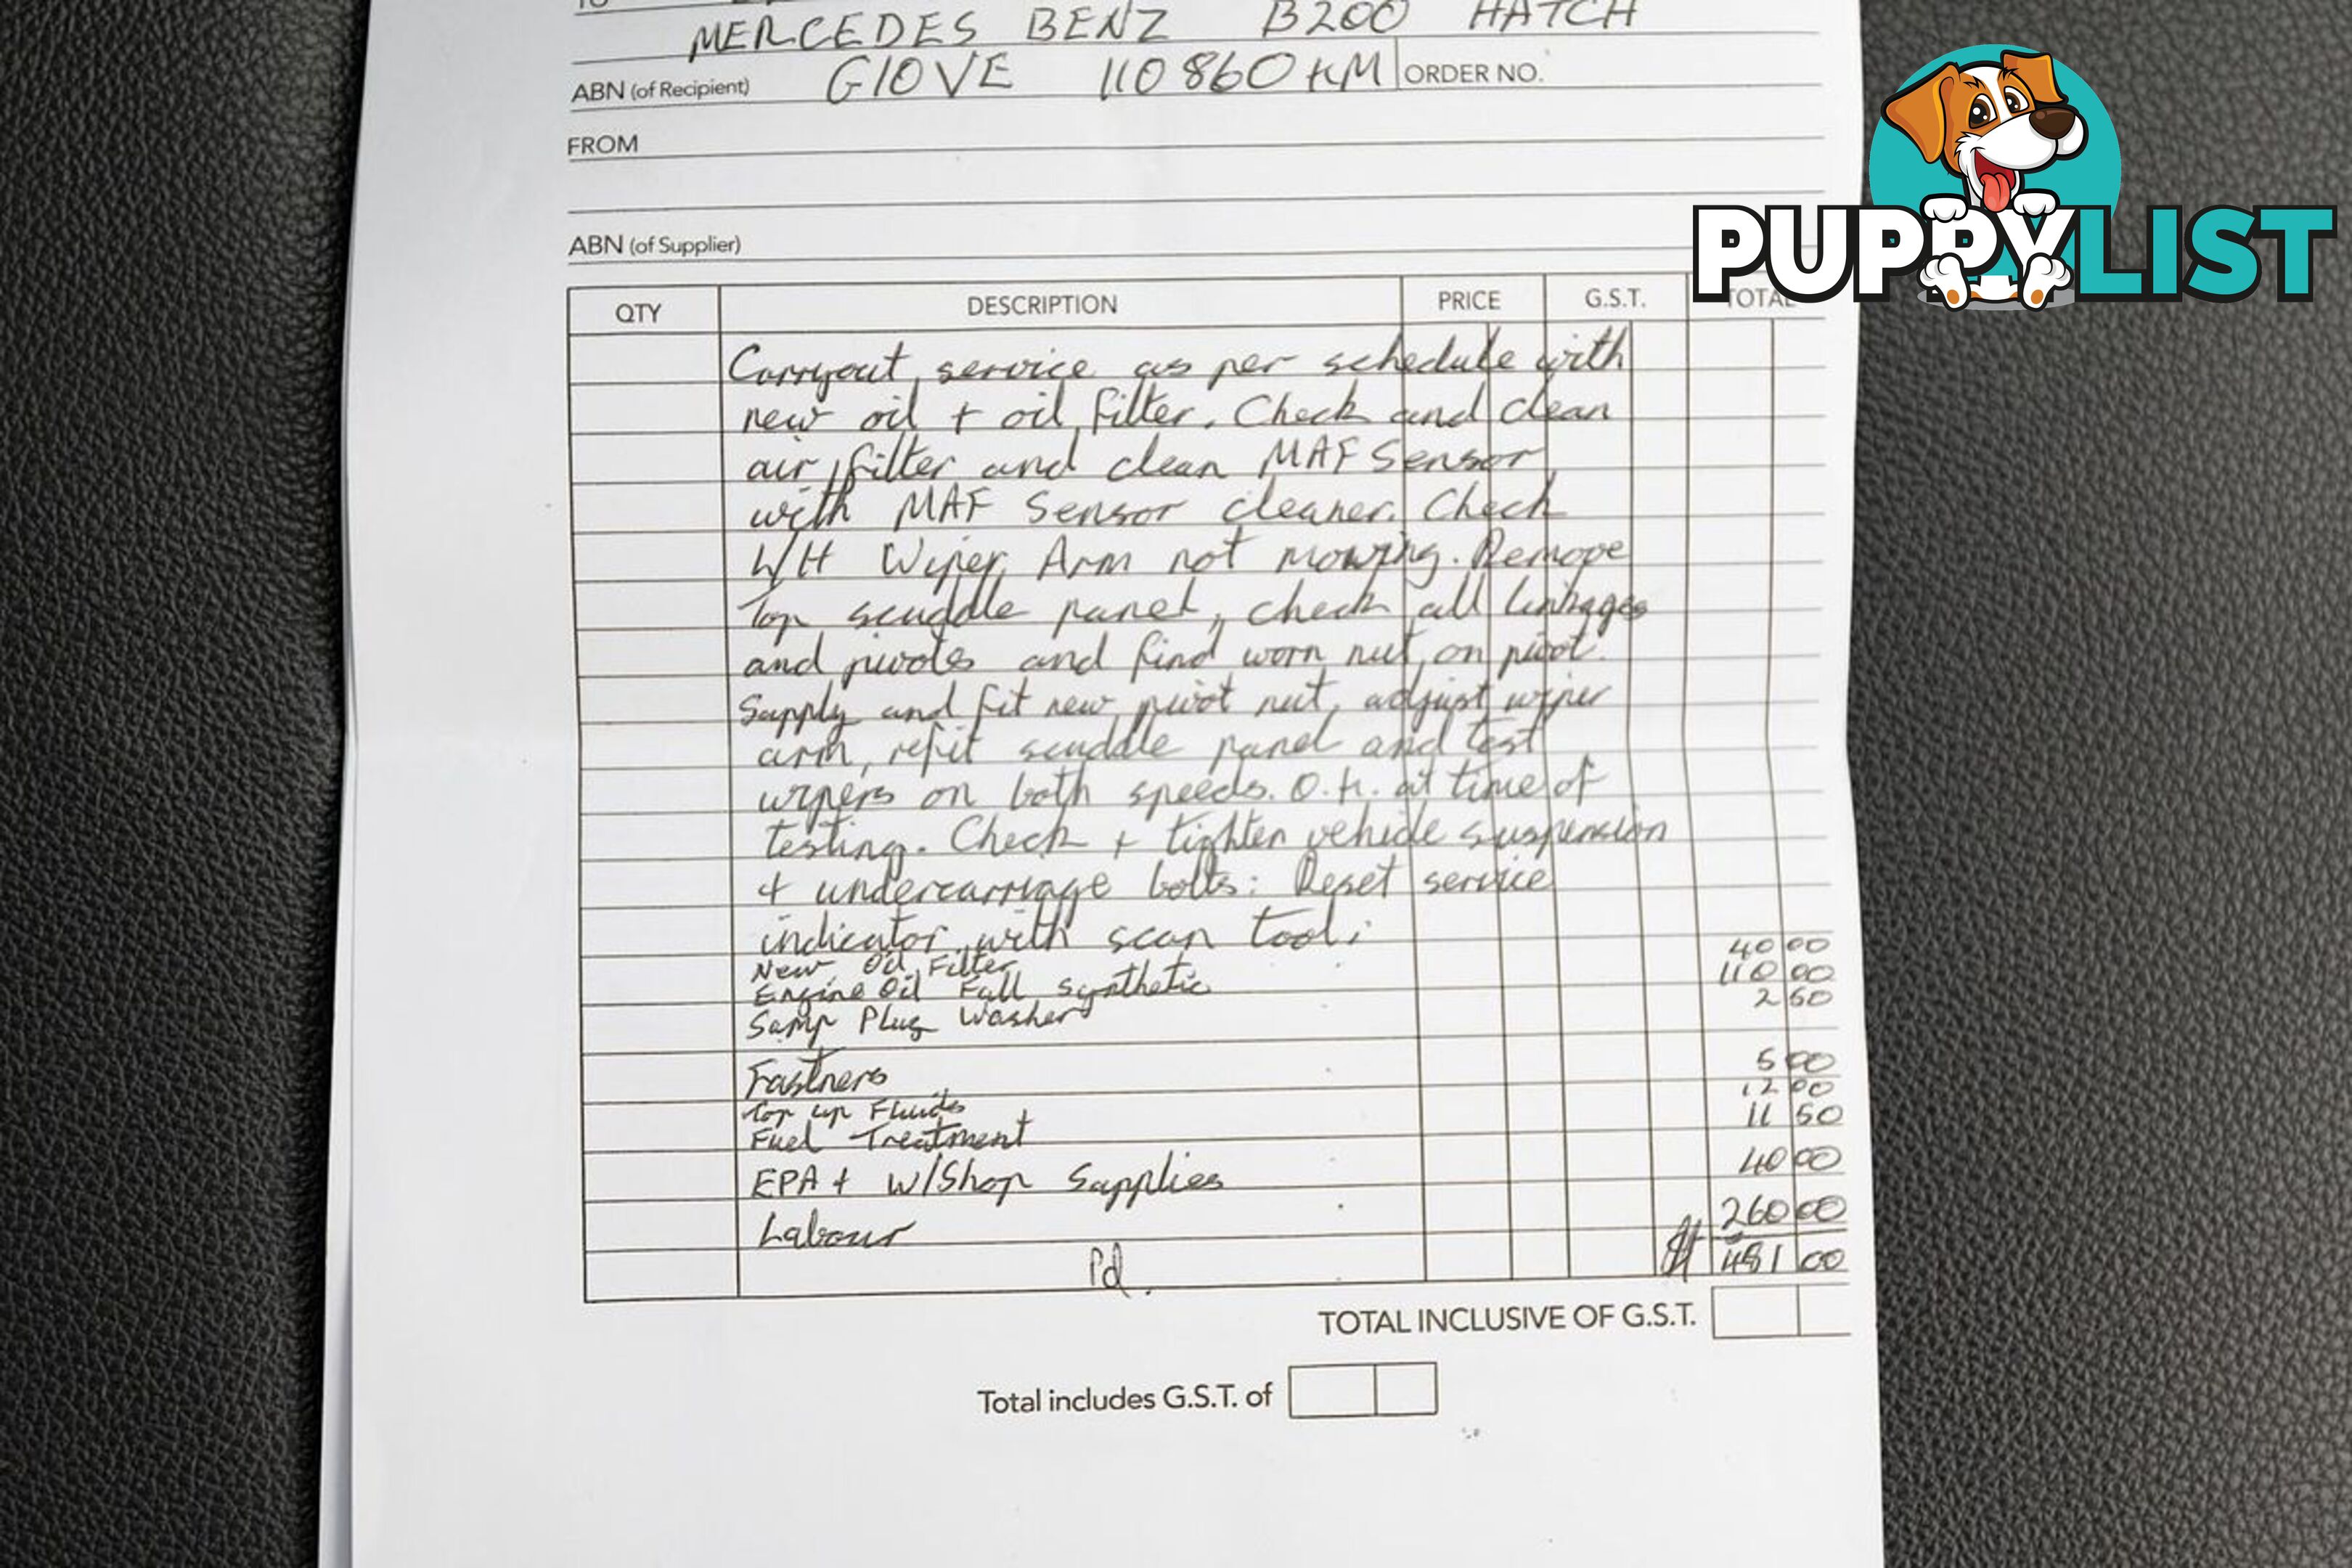 TO
MERCEDES BENZ B200 HATCH
ABN (of Recipient) G10VE 110 860 KM ORDER NO.
FROM
ABN (of Supplier)
PUPPYLIST
QTY DESCRIPTION PRICE G.S.T. TOTAL
Carryout service as per schedule with
new oil + oil filter. Check and clean
air filter and clean MAF Sensor
with MAF Sensor cleaner. Check
L/H Wiper Arm not moving. Remove
Top scuddle panel, check all linkages
and pivotes and find worn nut on pivot.
Supply and fit new pivot nut, adjust wiper
arm, refit scuddle panel and test
wipers on both speeds. O.K. at time of
testing. Check + tighten vehicle suspension
+ undercarriage bolts: Reset service
indicator with scan tool;
New Oil Filter 40 00
Engine Oil Full Synthetic 110 00
Sump Plug Washer 2 50
Fastners 5 00
Top up Fluids 12 00
Fuel Treatment 11 50
EPA + W/Shop Supplies 40 00
Labour 260 00
Pd. $ 481 00
TOTAL INCLUSIVE OF G.S.T.
Total includes G.S.T. of